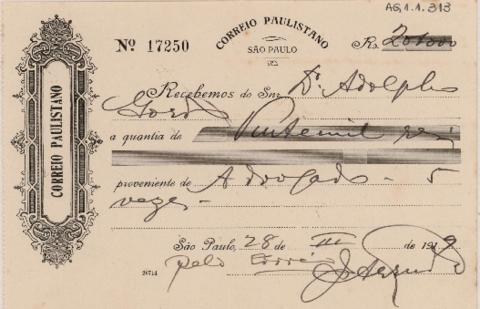 AG.1.1.313
CORREIO PAULISTANO
SÃO PAULO
Nº 17250
Rs. 20$000
CORREIO PAULISTANO
Recebemos do Snr. Dr. Adolpho
Gordo
a quantia de Vinte mil reis
proveniente de Advogado - 5
vezes -
São Paulo, 28 de III de 1919
pelo Correio
24714